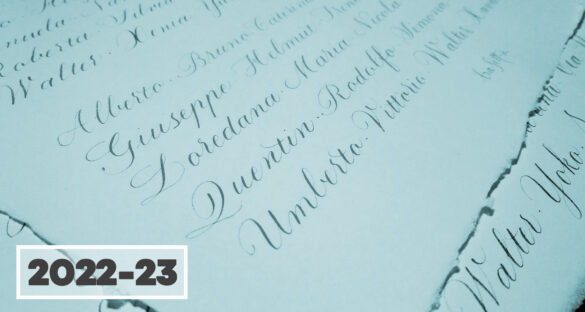 Roberta Silvia
Walter · Xenia
Alberto · Bruno · Caterina
Giuseppe · Helmut · Irene
Loredana · Maria · Nicola
Quentin · Rodolfo · Simona
Umberto · Vittorio · Walter
Walter · Yoko
2022-23